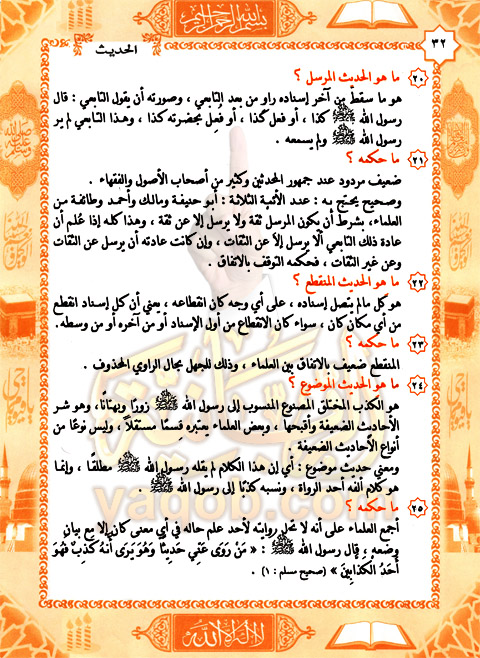 بسم الله الرحمن الرحيم
٣٢
الحديث
٢٠ ما هو الحديث المرسل ؟
هو ما سقط من آخر إسناده راو من بعد التابعي ، وصورته أن يقول التابعي : قال
رسول الله ﷺ كذا ، أو فعل كذا ، أو فُعِل بحضرته كذا ، وهذا التابعي لم ير
رسول الله ﷺ ولم يسمعه .
٢١ ما حكمه ؟
ضعيف مردود عند جمهور المحدثين وكثير من أصحاب الأصول والفقهاء .
وصحيح يحتج به : عند الأئمة الثلاثة : أبو حنيفة ومالك وأحمد وطائفة من
العلماء، بشرط أن يكون المرسل ثقة ولا يرسل إلا عن ثقة ، وهذا كله إذا عُلم أن
عادة ذلك التابعي ألّا يرسل إلاّ عن الثقات ، وإن كانت عادته أن يرسل عن الثقات
وعن غير الثقات ، فحكمه التوقف بالاتفاق .
٢٢ ما هو الحديث المنقطع ؟
هو كل مالم يتصل إسناده ، على أي وجه كان انقطاعه ، يعني أن كل إسناد انقطع
من أي مكان كان ، سواء كان الانقطاع من أول الإسناد أو من آخره أو من وسطه.
٢٣ ما حكمه ؟
المنقطع ضعيف بالاتفاق بين العلماء ، وذلك للجهل بحال الراوي المحذوف .
٢٤ ما هو الحديث الموضوع ؟
هو الكذب المختلق المصنوع المنسوب إلى رسول الله ﷺ زورًا وبهتانًا، وهو شر
الأحاديث الضعيفة وأقبحها ، وبعض العلماء يعتبره قِسمًا مستقلاً ، وليس نوعًا من
أنواع الأحاديث الضعيفة .
ومعنى حديث موضوع : أي إن هذا الكلام لم يقله رسول الله ﷺ مطلقًا ، وإنما
هو كلام ألفه أحد الرواة ، ونسبه كذبًا إلى رسول الله ﷺ .
٢٥ ما حكمه ؟
أجمع العلماء على أنه لا تحل روايته لأحد علم حاله في أي معنى كان إلا مع بيان
وضعه ، قال رسول الله ﷺ : « مَنْ رَوَى عَنِّي حَدِيثًا وَهُوَ يَرَى أَنَّهُ كَذِبٌ فَهُوَ
أَحَدُ الْكَذَّابِينَ » (صحيح مسلم : ١) .
yaqob.com
لا إله إلا الله